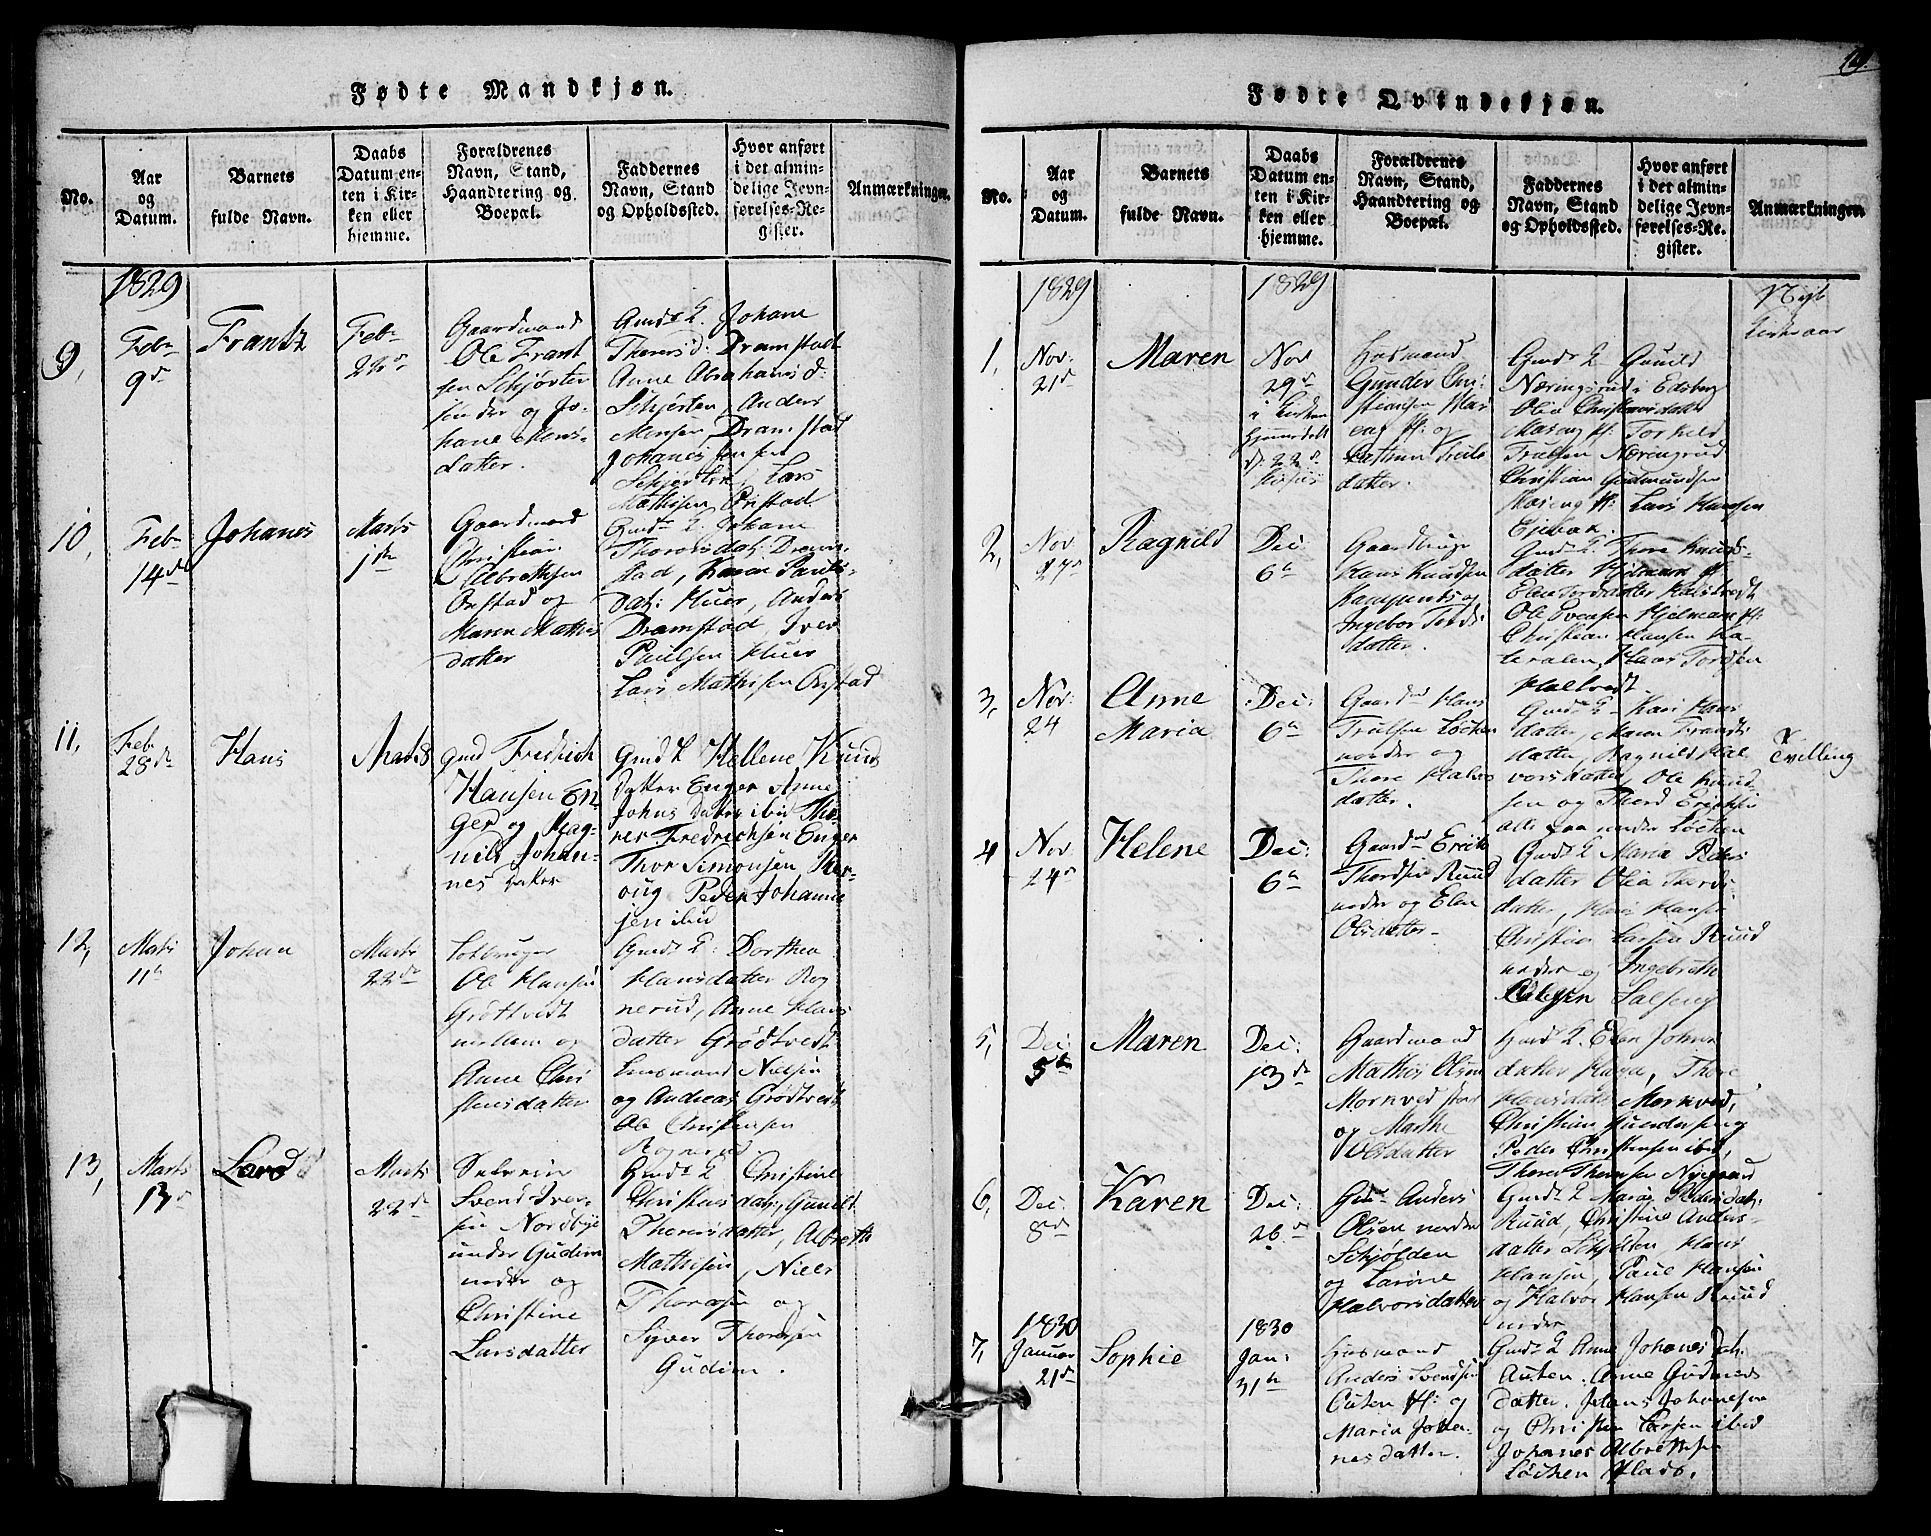 Fødte Mandkjøn.
No.
Aar
og
Datum.
Barnets
fulde Navn.
Daabs
Datum en-
ten i Kir-
ken eller
hjemme.
Forældrenes
Navn, Stand,
Haandtering og
Boepæl.
Faddernes
Navn, Stand
og Opholdssted.
Hvor anført
i det almin-
delige Jevn-
førelses-Re-
gister.
Anmærkninger.
1829
9,
Feb
9d
Frantz
Feb
22d
Gaardmand
Ole Frant
sen Schjørten
søndre og Jo-
hane Mons-
datter.
Gmdk Q. Johane
Thorersd: Dramstad
Anne Abrahams d:
Schjørten, Anders
Monsen, Dramstad
Johanes Jensen
Schjørten, Lars
Mathisen Onstad
10,
Feb
14d
Johanes
Marts
1ste
Gaardmand
Christian
Albretsen
Onstad og
Maren Mathis
datter
Gmdk Q. Johane
Thorersdat: Dram-
stad, Karen Pauls-
dat: Huer, Anders
Dramstad Iver
Paulsen Huer
Lars Mathisen Onstad
11,
Feb
28de
Hans
Marts 8
gmd Fredrich
Hansen En-
ger og Rag-
nild Johan-
nes Datter
Gmdk Hellene Knuds
Datter Enger Anne
Johns Datter ibid Tho-
rer Fredrichsen Enger
Thor Simonsen
Peder Johanne
sen ibid
12,
Marts
11th
Johan
Marts
22de
Ole Hansen
Grøttvedt
mellem og
Anne Chri
stensdatter
Gmdk Q: Dorthea
Hansdatter Rog
nerud, Anne Hans
datter Grødtvedt
Ungmand Nielsen
og Andreas Grødtvedt
Ole Christensen
Rognerud
13,
Marts
13d
Lars
Marts
22de
Svend Iver-
sen Nordbye
under Gudim
nedre og
Christine
Larsdatter
Gmdk Q Christine
Christensdat, Gunild
Thorersdatter, Albreth
Mathisen, Niels
Thoresen og
Syver Thoresen
Gudim.
Fødte Qvindekjøn.
No.
Aar
og
Datum.
Barnets
fulde Navn.
Daabs
Datum en-
ten i Kir-
ken eller
hjemme.
Forældrenes
Navn, Stand,
Haandtering og
Boepæl.
Faddernes
Navn, Stand
og Opholdssted.
Hvor anført
i det almin-
delige Jevn-
førelses-Re-
gister.
Anmærkninger.
1829
1829
Nyt
Kirkeaar
1,
Nov:
21d
Maren
Nov
29d
i Kirken
hjemmedøbt
d. 22d
Husmand
Gunder Chri-
stiansen Mas
eng H: og
datter.
Gmdk Q Gunild
Næringsrud i Edsberg
Olea Christensdatter
Maseng H: Torkild
Trulsen Næringsrud
Christian Gudmundsen
Maseng H: Lars Hansen
2,
Nov.
27d
Ragnild
Dec
6th
Gaardbruger
Hans Knudsen
og
Ingebor Tords
datter.
Gmdk Q Thore Knuds-
datter Hjelmark H:
Elen Tordsdatter Halstvedt
Ole Svensen Hjelmark H:
Christian Hansen
Lars Tordsen
Halstvedt
3,
Nov:
24
Anne
Maria
Dec:
6th
Gaardmd Hans
Trulsen Løchen
nordre og
Thore Halvors
datter.
Gmdk Q Kari Hans
datter, Maren Frandts
datter, Ragnild Hal
vorsdatter, Ole Knud-
sen og Thord Erichsen
alle paa nordre Løchen
Tvilling
4
Nov.
24d
Helene
Dec:
6th
Gaardmd Erich
Thordsen Ruud
nedre og Elen
Olsdatter
Gmdk Q Maria Peders
datter Olea Thords
datter, Hans Hansen
Christian Larsen Ruud
nedre og Ingebreth
Olesen Salseng
5,
Dec:
5te
Maren
Dec:
13de
Gaardmand
Mathis Olsen
Mørkved store
og Marthe
Olsdatter
Gmdk Q. Elen Johns
datter Thore
Hansdatter Mørkved,
Christian Gundersen og
Peder Christensen ibid,
Thorer Thorersen Nygaard
6,
Dec:
8d
Karen
Dec:
26d
Gmd Anders
Olsen nordre
Schjølden
og Larine
Halvorsdatter
Gmdk Q Maria Pedersdat:
Ruud, Christine Anders-
datter Schjølden, Hans
Hansen, Paul Hansen
og Halvor Hansen Ruud
nedre
1830
1830
7,
Januar
21d
Sophie
Jan:
31th
Husmand
Anders Svendsen
Auten H: og
Maria Johan-
nesdatter.
Gmdk Q Anne Johanesdat.
Auten. Anne Gudmds
datter. Johans Johannesen
og Christen Larsen ibid
Johanes Albrettsen
Løchen Plads.